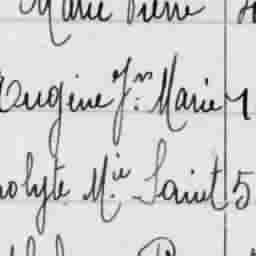 Marie Pierre
Eugène Jn Marie 1
polyte Mie Saint 5